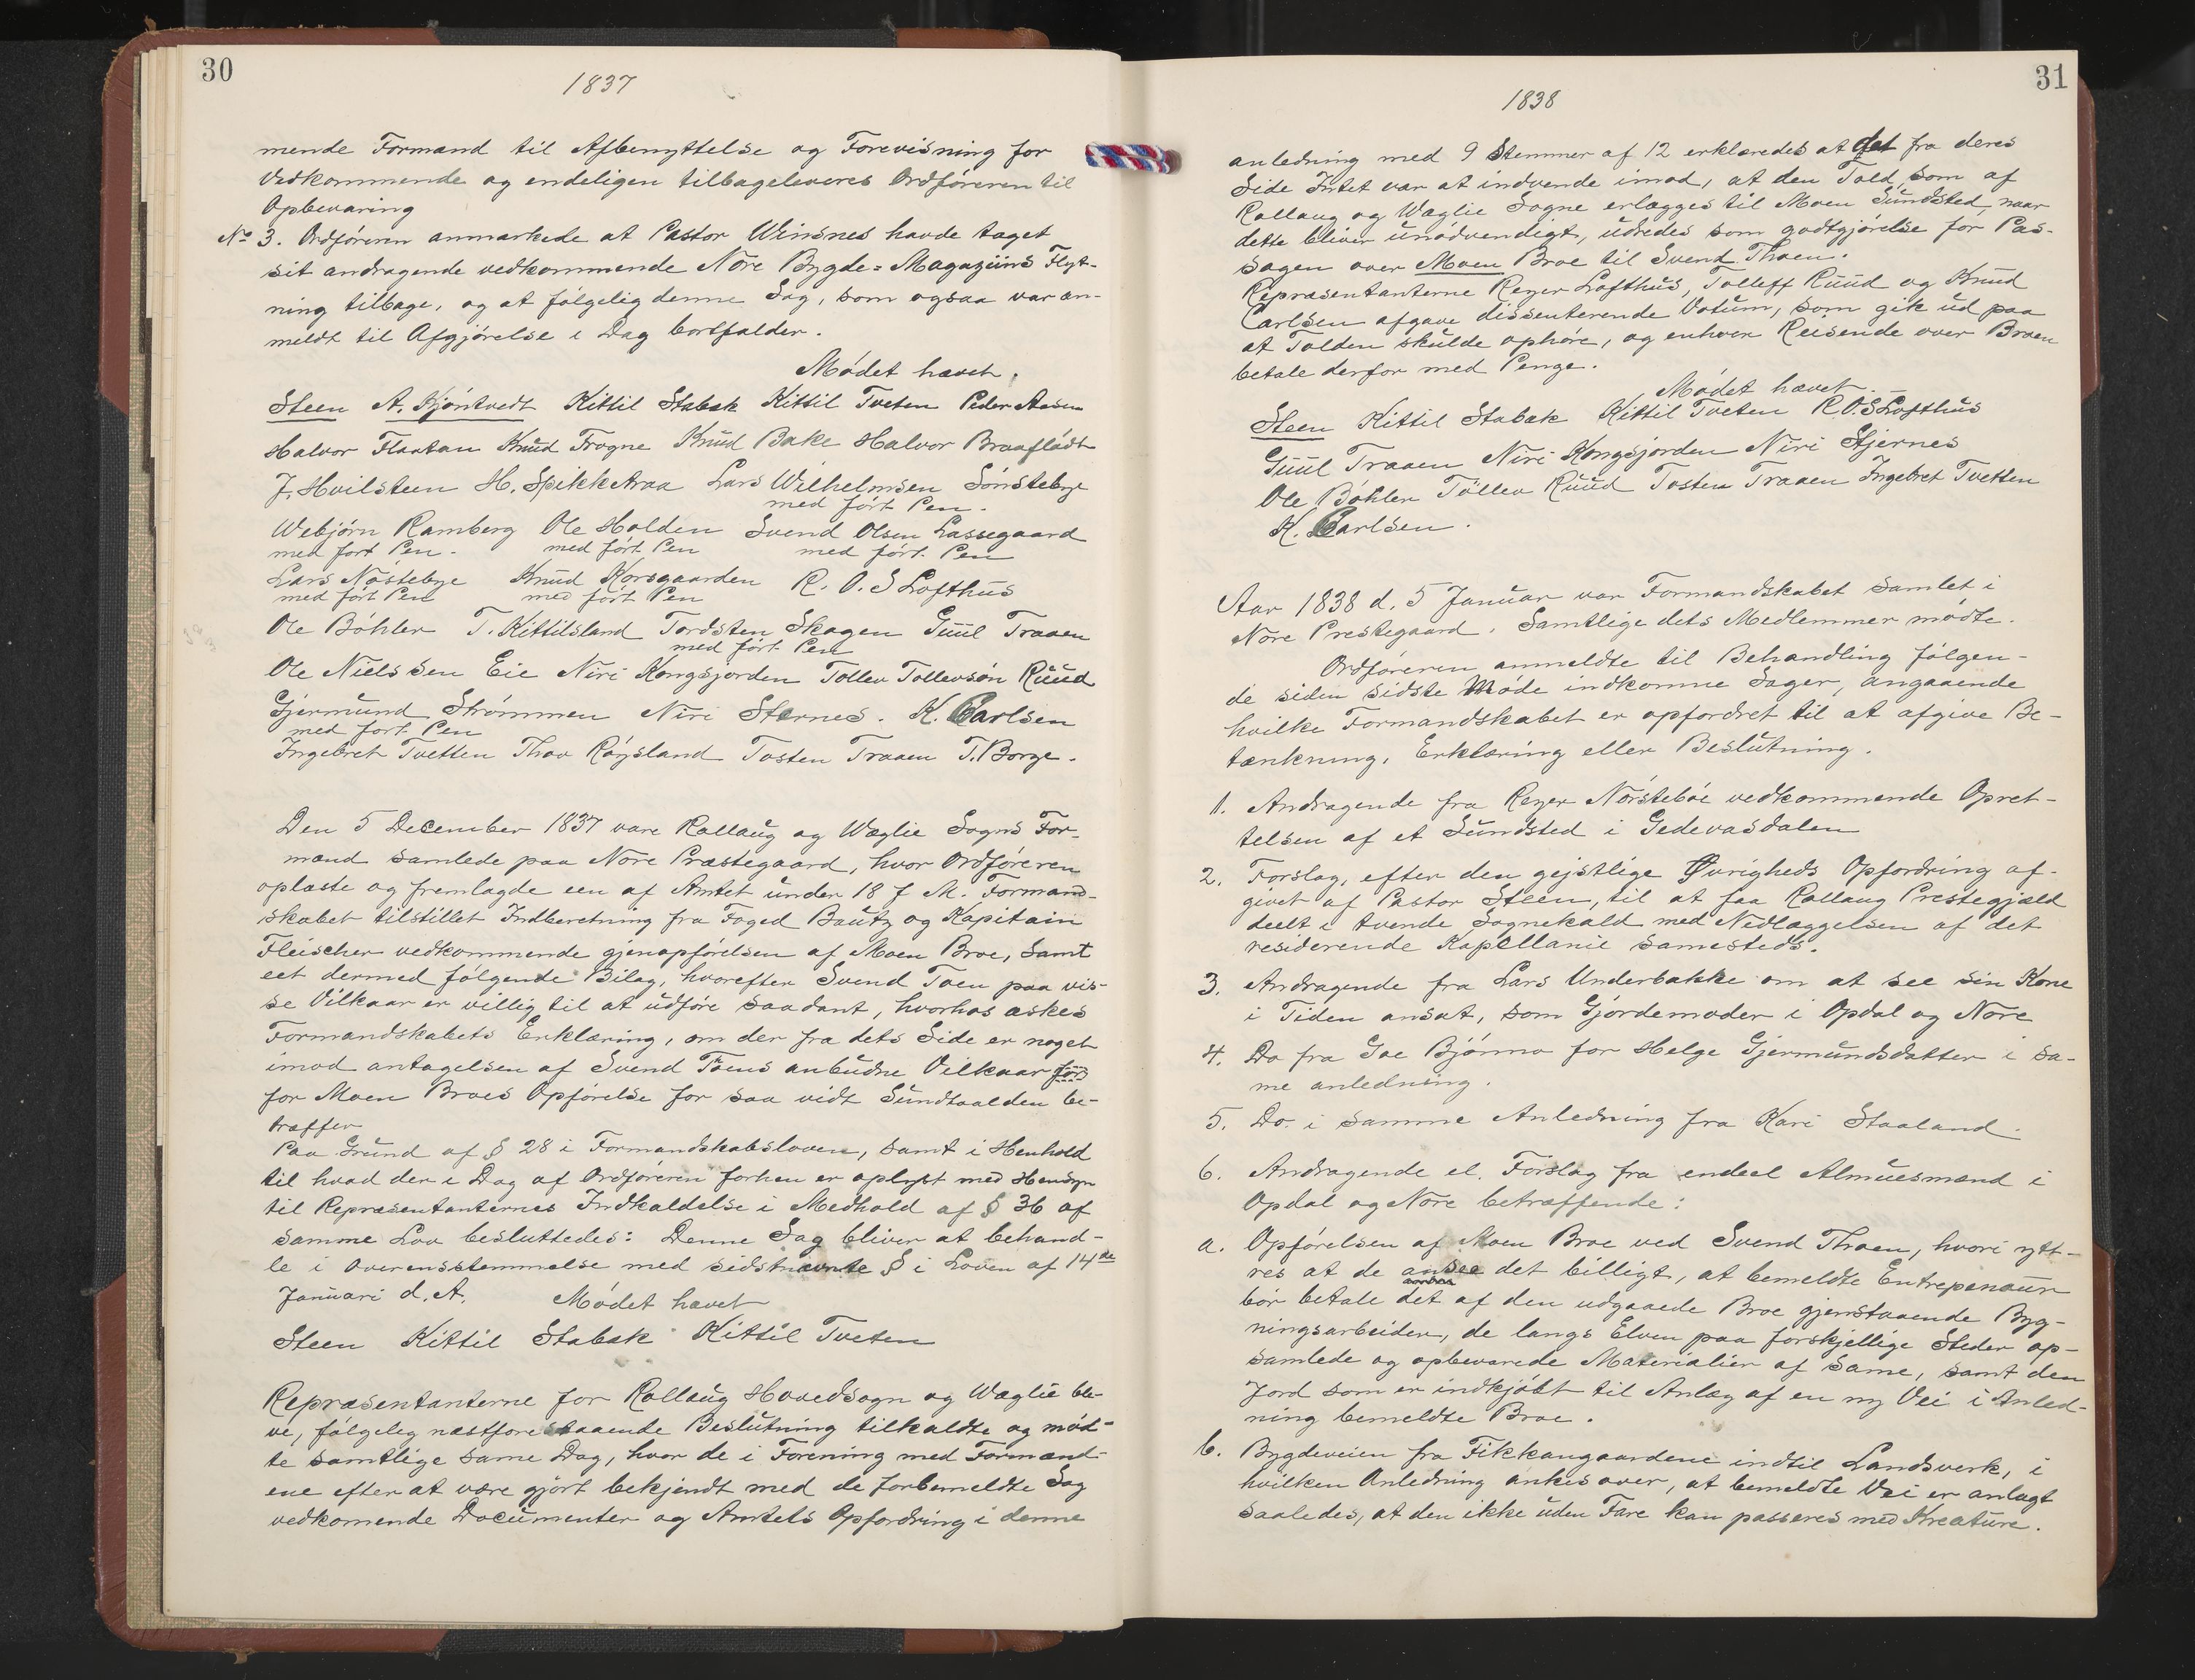 30
1837
mende Formænd til Afbenyttelse og Forevisning for
Vedkommende og endeligen tilbageleveres Ordføreren til
Opbevaring
No 3. Ordføreren anmærkede at Pastor Winsnes havde taget
sit andragende vedkommende Nore Bygde=Magaziins Flyt-
ning tilbage, og at følgelig denne Sag, som ogsaa var an-
meldt til Afgjørelse i Dag bortfalder.
Mødet hævet.
Steen A. Kjøntvedt Kittil Stabæk Kittil Tveten Peder Aasen
Halvor Flaatan Knud Frogne Knud Bakke Halvor Braaflådt
J. Hvilsteen H. Spikkeraa Lars Wilhelmsen Sønstebye
med ført Pen.
Webjørn Ramberg Ole Holden Svend Olsen Lassegaard
med ført Pen. med ført Pen med ført. Pen
Lars Nøstebye Knud Korsgaarden R. O. S Lofthus
med ført Pen med ført Pen
Ole Bøhler T. Kittilsland Tordsten Skogen Guul Traaen
med ført Pen
Ole Nielssen Eie Niri Kongsjorden Tollev Tollevsøn Ruud
Gjermund Strømmen Niri Stærnes. K. Carlsen
med ført Pen
Ingebret Tvetten Thov Røysland Tosten Traaen T. Borge.
Den 5 December 1837 vare Rollaug og Wæglie Sogns For-
mænd samlede paa Nore Præstegaard, hvor Ordføreren
oplæste og fremlagde een af Amtet under 18 f M. Formand-
skabet tilstillet Indberetning fra Foged Bautz og Kapitain
Fleischer vedkommende gjenopførelsen af Moen Broe, samt
eet dermed følgende Bilag, hvorefter Svend Toen paa vis-
se Vilkaar er villig til at udføre saadant, hvorhos æskes
Formandskabets Erklæring, om der fra dets Side er noget
imod antagelsen af Svend Toens anbudne Vilkaar for
for Moen Broes Opførelse for saa vidt Sundtolden be-
træffer
Paa Grund af § 28 i Formandskabsloven, samt i Henhold
til hvad der i Dag af Ordføreren forhen er oplyst med Hensyn
til Repræsentanternes Indkaldelse i Medhold af § 36 af
samme Lov besluttedes: Denne Sag bliver at behand-
le i Overensstemmelse med sidstnævnte § i Loven af 14de
Januari d. A. Mødet hævet
Steen Kittil Stabæk Kittil Tveten
Repræsentanterne for Rollaug Hovedsogn og Wæglie ble-
ve, følgelig næstforestaaende Beslutning tilkaldte og mød-
te samtlige same Dag, hvor de i Forening med Formænd-
ene efter at være gjort bekjendt med de forbemeldte Sag
vedkomende Documenter og Amtets Opfordring i denne
31
1838
anledning med 9 Stemmer af 12 erklæredes at det fra deres
Side Intet var at indvende imod, at den Told, som af
Rollaug og Wæglie Sogne erlægges til Moen Sundsted, naar
dette bliver unødvendigt, udredes som godtgjørelse for Pas-
sagen over Moen Broe til Svend Thoen.
Repræsentanterne Reyer Lofthus, Tolleff Ruud og Knud
Carlsen afgave dissenterende Votum, som gik ud paa
at Tolden skulde ophøre, og enhver Reisende over Broen
betale derfor med Penge.
Mødet hævet.
Steen Kittil Stabæk Kittil Tveten R. O. S Lofthus
Guul Traaen Niri Kongsjorden Niri Stjernes
Ole Bøhler Tøllev Ruud Tosten Traaen Ingebret Tvetten
K. Carlsen.
Aar 1838 d. 5 Januar var Formandskabet samlet i
Nore Prestegaard. Samtlige dets Medlemmer mødte.
Ordføreren anmeldte til Behandling følgen-
de siden sidste Møde indkomne Sager, angaaende
hvilke Formandskabet er opfordret til at afgive Be-
tænkning, Erklæring eller Beslutning.
1. Andragende fra Reyer Nørstebøe vedkommende Opret-
telsen af et Sundsted i Gedevasdalen
2. Forslag, efter den gejstlige Øvrigheds Opfordring af-
givet af Pastor Steen, til at faa Rollaug Prestegjæld
deelt i tvende Sognekald med Nedlæggelsen af det
residerende Kapellanie samesteds.
3. Andragende fra Lars Underbakke om at see sin Kone
i Tiden ansat, som Gjordemoder i Opdal og Nore
4. Do fra Goe Bjønno for Helge Gjermundsdatter i sa-
me anledning.
5. Do. i samme Anledning fra Kari Staaland.
6. Andragende el. Forslag fra endeel Almuesmænd i
Opdal og Nore betræffende:
a. Opførelsen af Moen Broe ved Svend Thoen, hvori ytt-
res at de ansee det billigt, at bemeldte Entrepenøur
bør betale det af den udgaaede Broe gjenstaaende Byg-
ningsarbeider, de langs Elven paa forskjellige Steder op-
samlede og opbevarede Materialier af same, samt den
Jord som er indkjøbt til Anlæg af en ny Vei i Anled-
ning bemeldte Broe.
b. Bygdeveien fra Fikkangaardene indtil Landsverk, i
hvilken Anledning ankes over, at bemeldte Vei er anlagt
saaledes, at den ikke uden Fare kan passeres med Kreature.